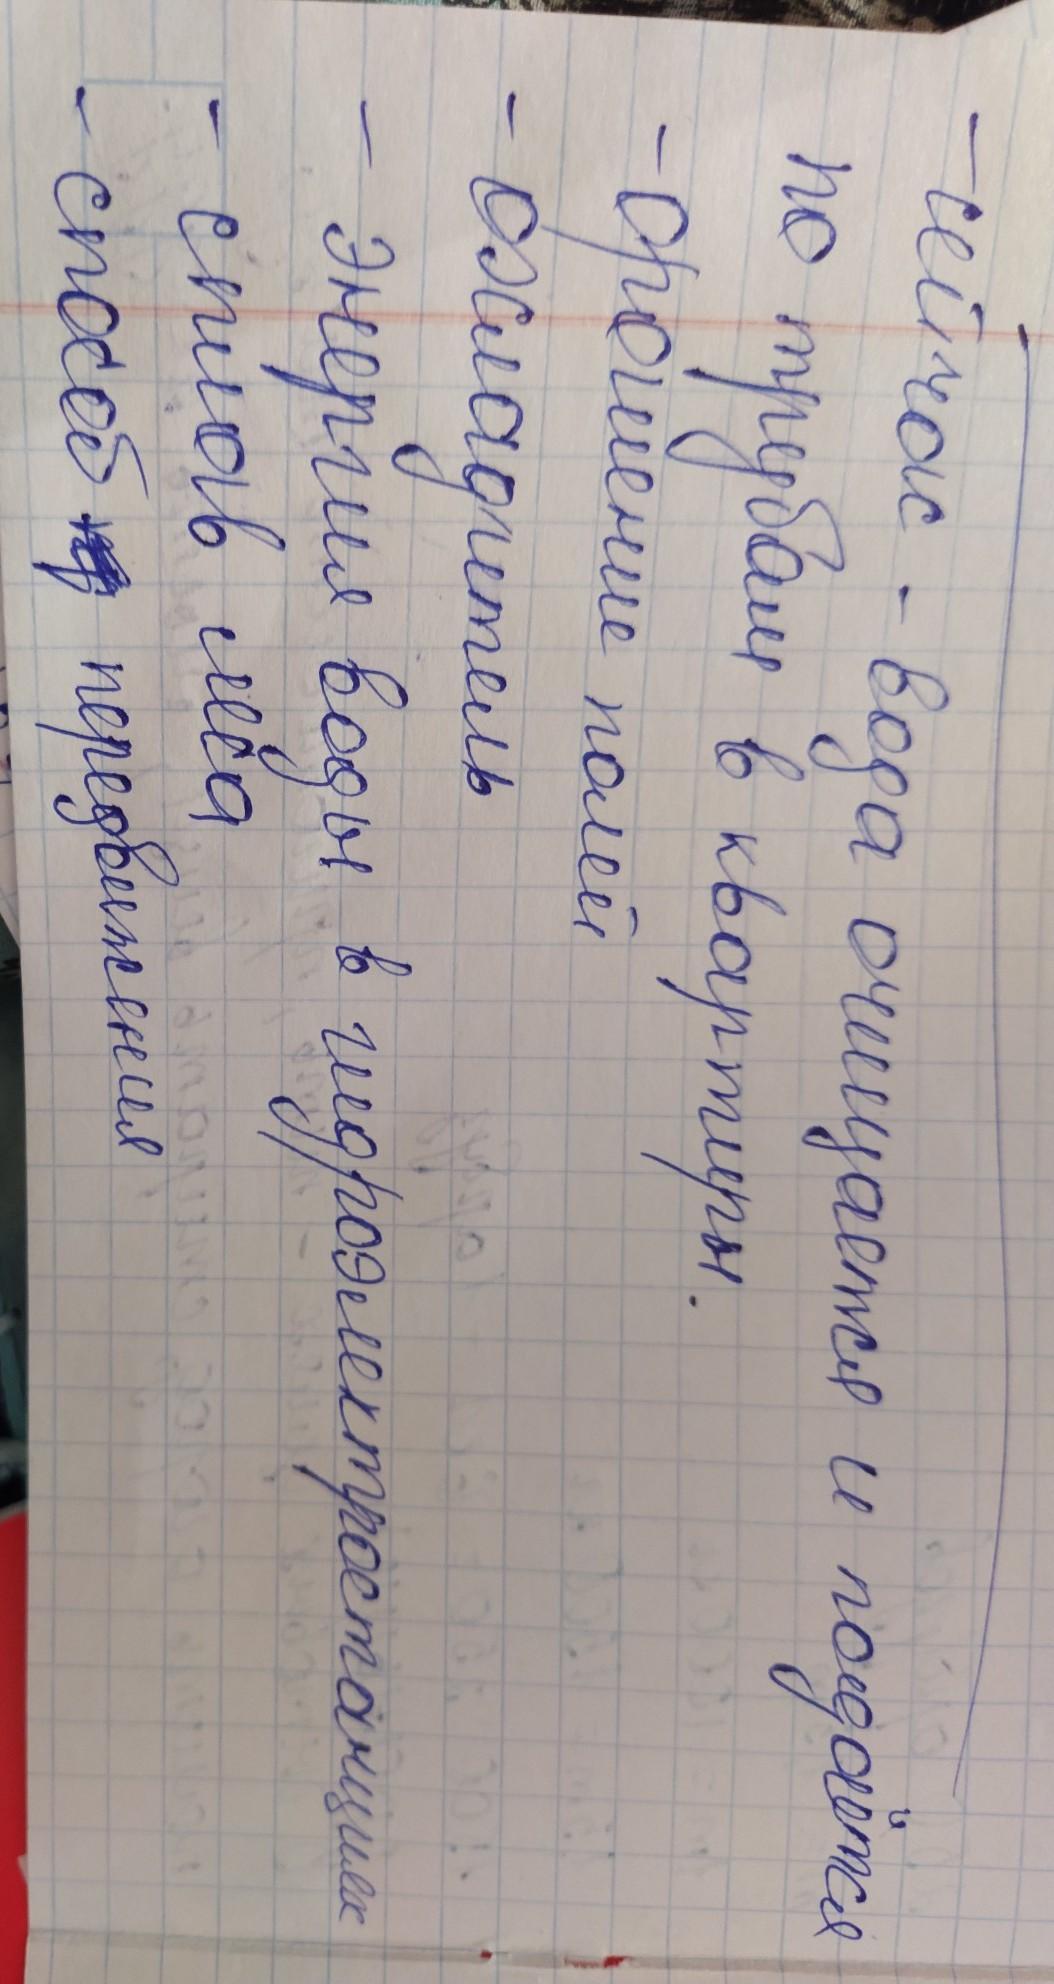 - сейчас - вода очищается и подаётся
по трубам в квартуры.
- орошение полей
- охладитель
- энергия воды в гидроэлектростанциях
- сплав леса
- способ передвижения